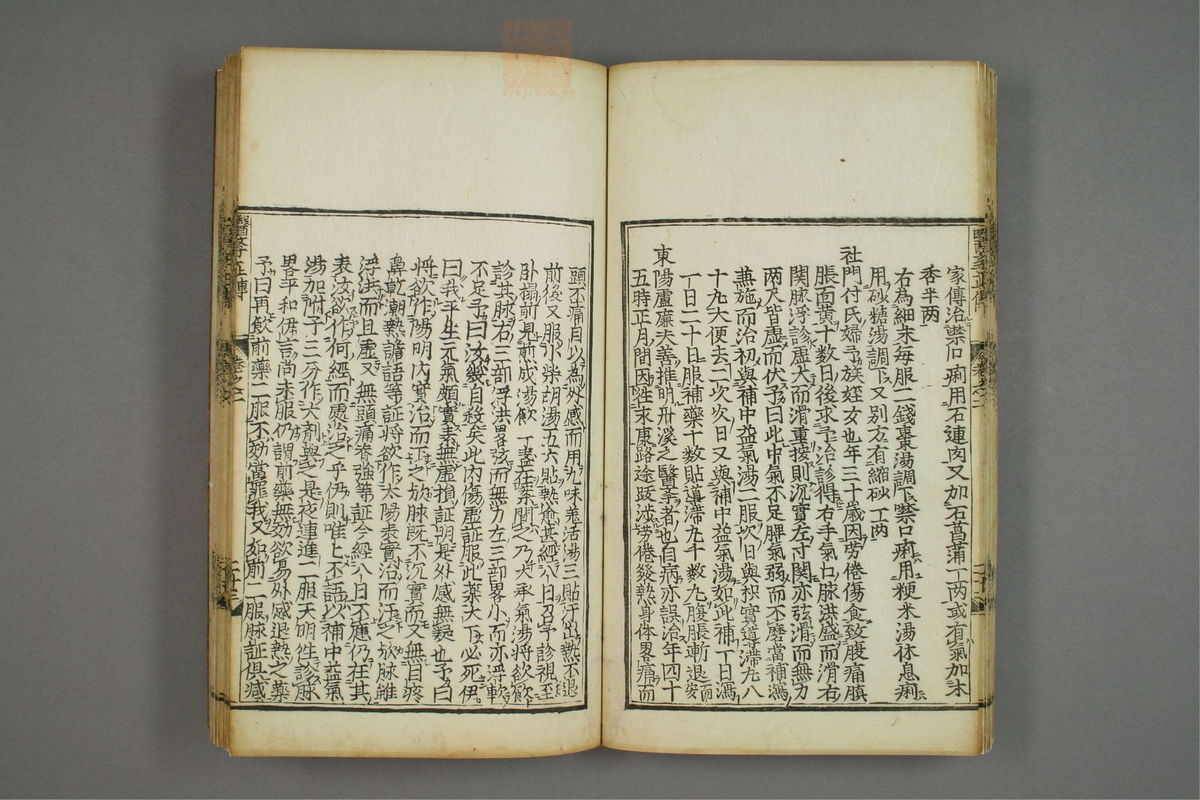 家傳治噤口痢用石連肉又加石菖蒲一兩或有氣加木
香半兩
右為細末每服二錢棗湯調下噤口痢用粳米湯休息痢
用砂糖湯調下又別方有縮砂一兩
社門付氏婦予族姪女也年三十歲因勞倦傷食致腹痛䐜
脹面黃十數日後求予治診得右手氣口脉洪盛而滑右
關脉浮診虛大而滑重按則沉實左寸關亦弦滑而無力
兩尺皆虛而伏予曰此中氣不足脾氣弱而不磨當補瀉
兼施而治初與補中益氣湯二服次日與枳實導滯丸八
十丸大便去二次次日又與補中益氣湯如此補一日瀉
一日二十日服補藥十數貼導滯丸千數丸腹脹漸退而安
東陽盧廉夫善推明丹溪之醫學者也自病亦誤治年四十
五時正月間因往永康路途跋涉勞倦發熱身体畧痛而
頭不痛自以為外感而用九味羌活湯三貼汗出熱不退
前後又服小柴胡湯五六貼熱愈甚經八日召予診視至
卧榻前見前成湯飲一盞在案問之乃大承氣湯將欲飲
診其脉右三部浮洪畧弦而無力左三部畧小而亦浮軟
不足予曰汝幾自殺矣此內傷虛証服此藥大下必死伊
曰我平生元氣頗實素無虛損証明是外感無疑也予曰
將欲作陽明內實治而下之欤脉既不沉實而又無目疼
鼻乾潮熱譫語等証將欲作太陽表實治而汗之欤脉雖
浮洪而且虛又無頭痛脊強等証今經八日不應仍在其
表汝欲作何經而處治之乎伊則唯上不語以補中益氣
湯加附子三分作大劑與之是夜連進二服天明往診脉
畧平和伊言尚未服仍謂前藥無効欲易外感退熱之藥
予曰再飲前藥二服不効當罷我又如前二服脉証俱减